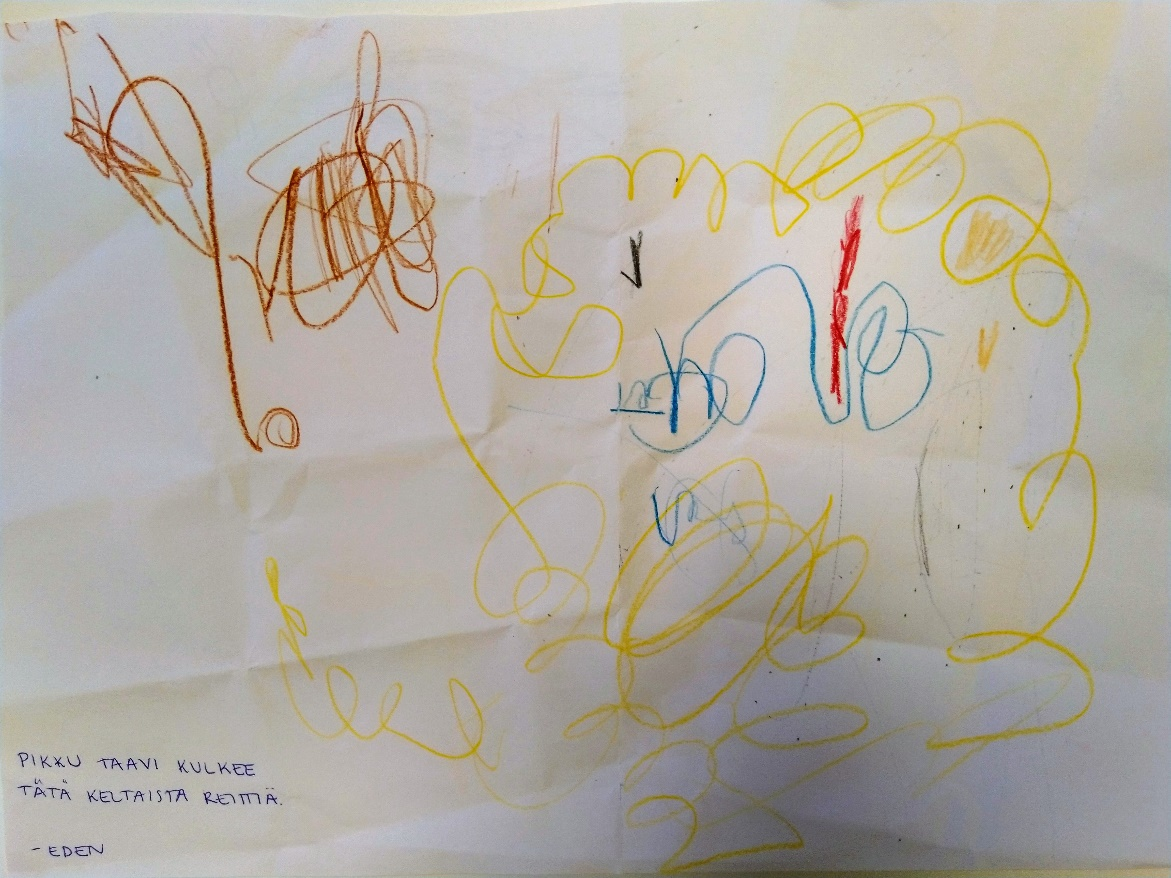 PIKKU TAAVI KULKEE
TÄTÄ KELTAISTA REITTIÄ.
- EDEN